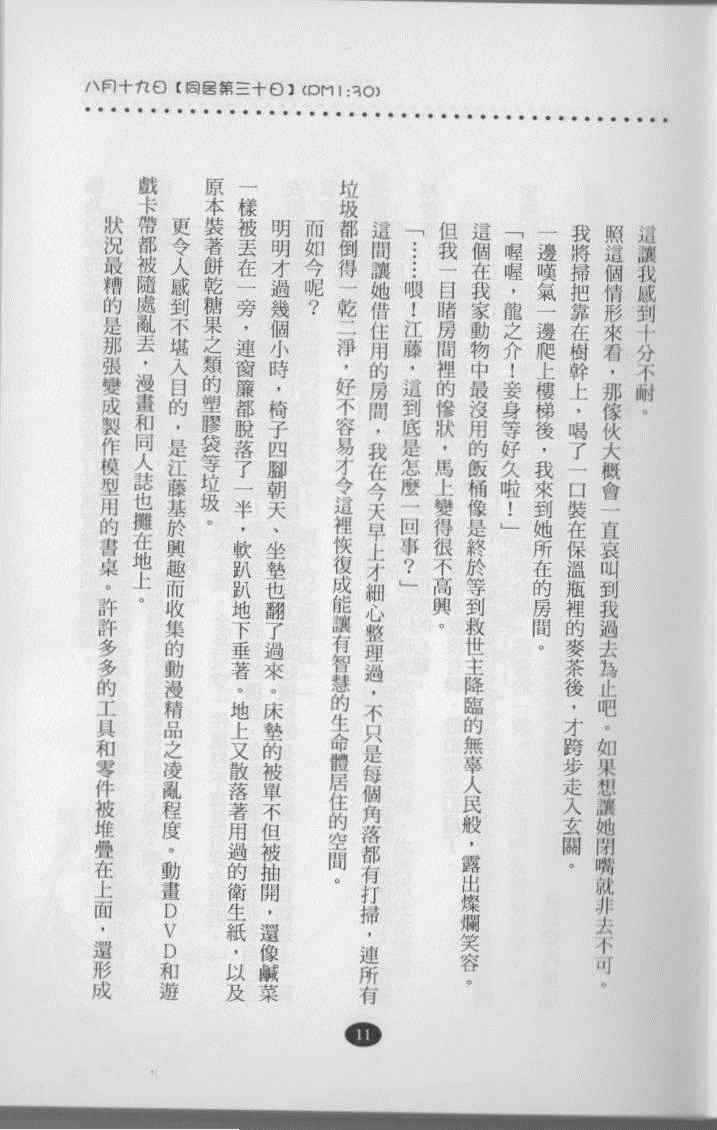 八月十九日【同居第三十日】(PM1:30)
這讓我感到十分不耐。
照這個情形來看，那傢伙大概會一直哀叫到我過去為止吧。如果想讓她閉嘴就非去不可。
我將掃把靠在樹幹上，喝了一口裝在保溫瓶裡的麥茶後，才跨步走入玄關。
一邊嘆氣一邊爬上樓梯後，我來到她所在的房間。
「喔喔，龍之介！妾身等好久啦！」
這個在我家動物中最沒用的飯桶像是終於等到救世主降臨的無辜人民般，露出燦爛笑容。
但我一目睹房間裡的慘狀，馬上變得很不高興。
「……喂！江藤，這到底是怎麼一回事？」
這間讓她借住用的房間，我在今天早上才細心整理過，不只是每個角落都有打掃，連所有
垃圾都倒得一乾二淨，好不容易才令這裡恢復成能讓有智慧的生命體居住的空間。
而如今呢？
明明才過幾個小時，椅子四腳朝天、坐墊也翻了過來。床墊的被單不但被抽開，還像鹹菜
一樣被丟在一旁，連窗簾都脫落了一半，軟趴趴地下垂著。地上又散落著用過的衛生紙，以及
原本裝著餅乾糖果之類的塑膠袋等垃圾。
更令人感到不堪入目的，是江藤基於興趣而收集的動漫精品之凌亂程度。動畫DVD和遊
戲卡帶都被隨處亂丟，漫畫和同人誌也攤在地上。
狀況最糟的是那張變成製作模型用的書桌。許許多多的工具和零件被堆疊在上面，還形成
11